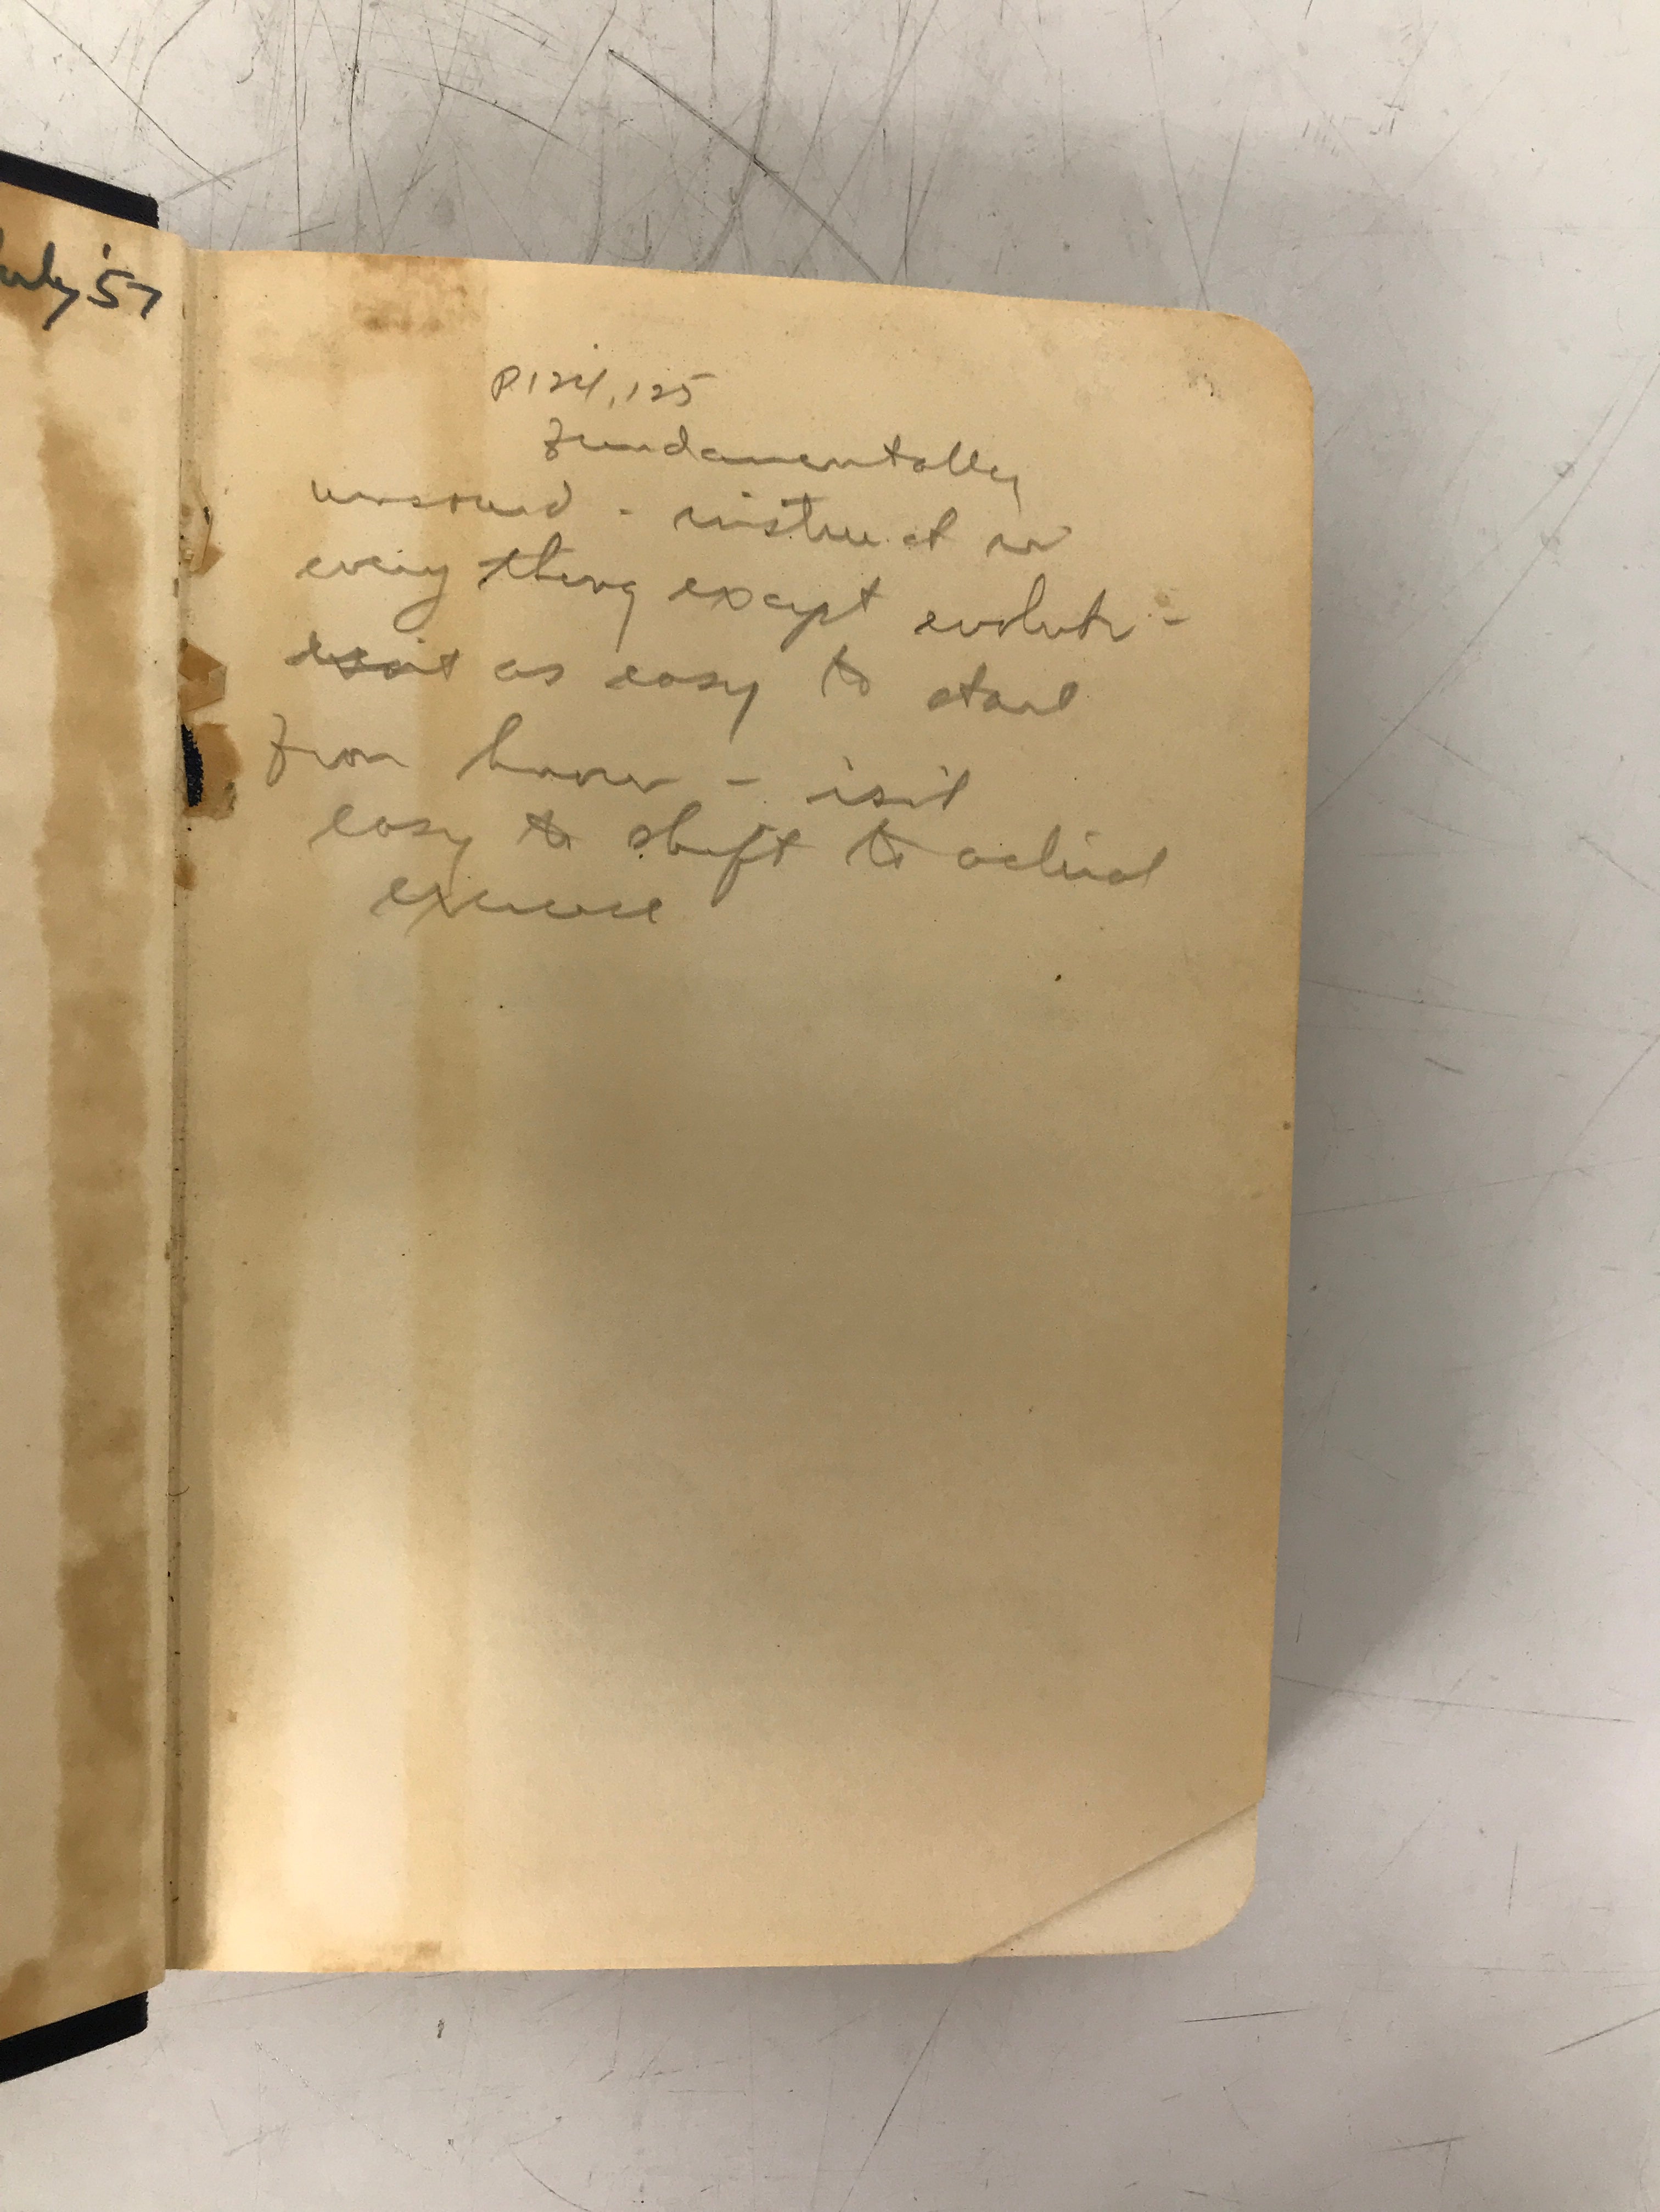 July '57
p. 124, 125
Fundamentally
unsound - instruct in
every thing except evolutn -
as easy to start
from - is it
easy to shift to actual